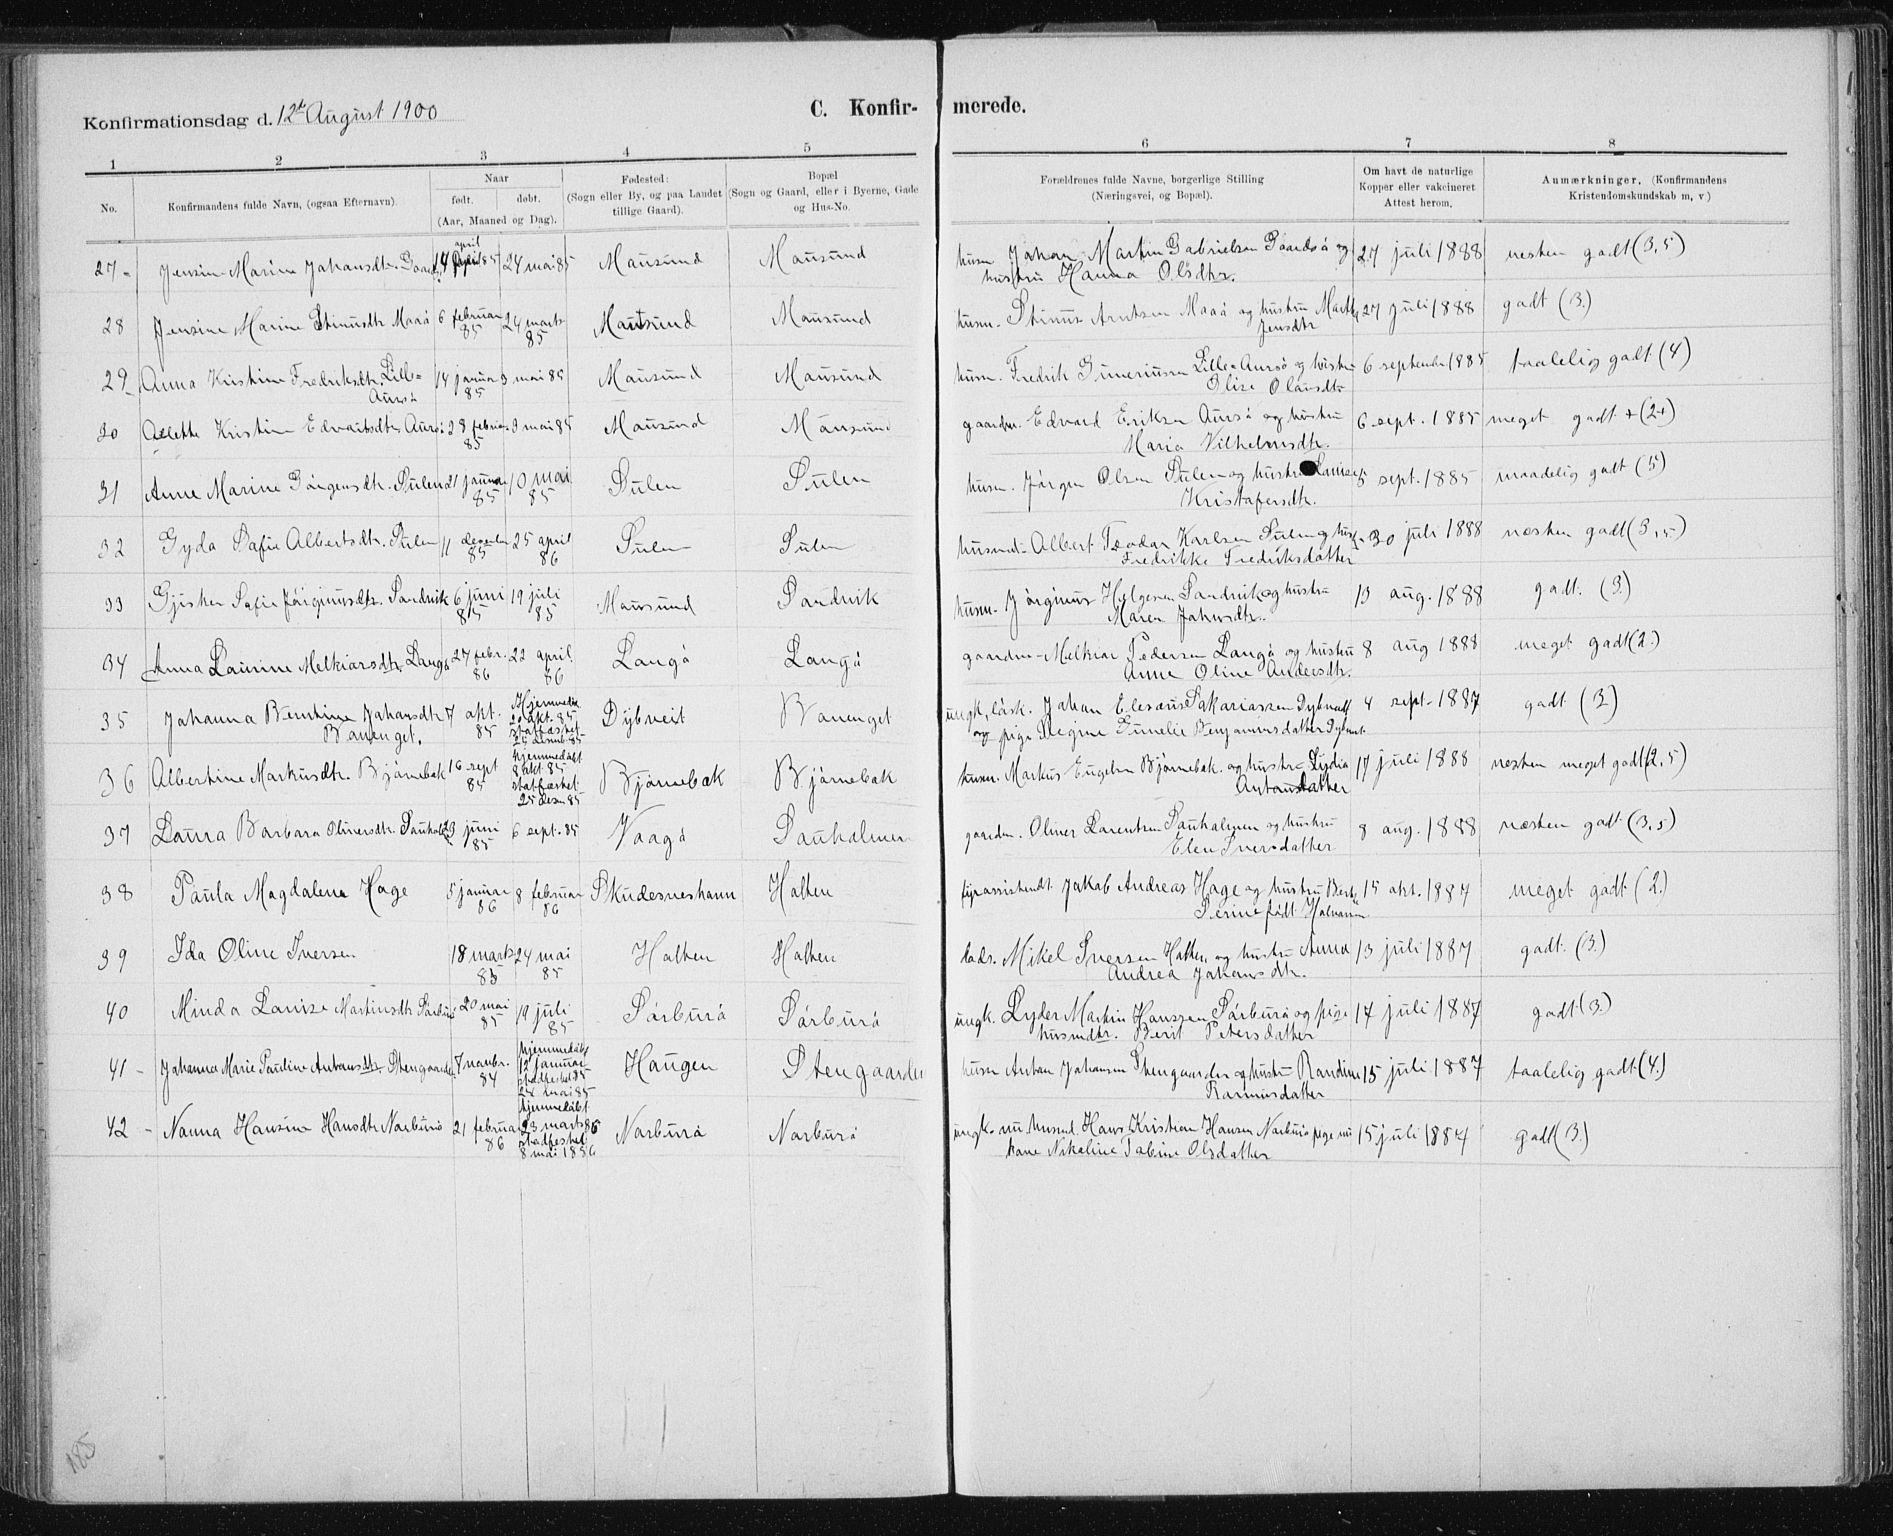 Konfirmationsdag d. 12te August 1900
C. Konfir- merede.
1 2 3 4 5 6 7 8
No.
Konfirmandens fulde Navn, (ogsaa Efternavn).
Naar
født. døbt.
(Aar, Maaned og Dag).
Fødested:
(Sogn eller By, og paa Landet
tillige Gaard).
Bopæl
(Sogn og Gaard, eller i Byerne, Gade
og Hus-No.
Forældrenes fulde Navne, borgerlige Stilling
(Næringsvei, og Bopæl).
Om havt de naturlige
Kopper eller vakcineret
Attest herom.
Anmærkninger, (Konfirmandens
Kristendomskundskab m, v.)
april
27 - Jensine Marine Johansdtr. 14 85 24 mai 85 Mausund Mausund husm Johan Martin Gabrielsen og 27 juli 1888 nesten godt (3,5)
hustru Hanna Olsdtr.
28 Jensine Marine Stinusdtr Maaø 6 februar 85 24 marts 85 Mausund Mausund husm. Stinus Arntsen Maaø og hustru 27 juli 1888 godt (3.)
Jensdtr
29 Anna Kristine Fredriksdtr. Lille- 14 januar 85 3 mai 85 Mausund Mausund husm. Fredrik Lille-Aursø og hustru 6 september 1885 taalelig godt (4)
Aursø Elise Olausdtr
30 Kristine Edvartsdtr Aursø 28 februar 85 3 mai 85 Mausund Mausund gaardm. Edvard Eriksen Aursø og hustru 6 sept. 1885 meget godt + (2+)
Maria Vilhelmsdtr.
31 Anne Marine Jørgensdtr. Sulen 21 januar 85 10 mai 85 Sulen Sulen husm. Jørgen Olsen Sulen og hustru Lovise sept. 1885 maadelig godt (5)
Kristofersdtr.
32 Gyda Safie Albertsdtr. Sulen 11 desember 85 25 april 86 Sulen Sulen husmd. Albert Teodor Karlsen Sulen og hustr. 30 juli 1888 næsten godt (3,5)
Fredrikke Fredriksdatter
33 Safie Jørginusdtr. Sandvik 6 juni 85 19 juli 85 Mausund Sandvik husm. Jørginus Helgesen Sandvik og hustru 13 aug. 1888 godt. (3.)
Maren Johnsdtr.
34 Anna Laurine Melkiorsdtr. Langø 27 febr. 86 22 april 86 Langø Langø gaardm. Melkior Pedersen Langø og hustru 8 aug 1888 meget godt (2.)
Anne Oline Andersdtr.
35 Johanna Berntine Johansdtr 7 okt. 85 Hjemmedøbt okt. 85 stadfæstet desemb. 85 Dybveit ungk. løsk. Johan Eleseus Sakariassen 4 sept. 1887 godt (3)
og pige Regine Benjaminsdatter
36 Albertine Markusdtr. Bjørnebak 16 sept 85 hjemmedøbt 8 okt. 85 stadfæstet 25 desem 85 Bjørnebak Bjørnebak husm. Markus Bjørnebak. og hustru Lydia 17 juli 1888 nesten meget godt (2,5)
Antonsdatter
37 Laura Barbara Olinersdtr. 23 juni 85 6 sept. 85 Vaagø Sauholmen gaardm. Oliner Lorentsen Sauholmen og hustru 8 aug. 1888 næsten godt (3,5)
Elen Iversdatter
38 Paula Magdalena Hage 5 januar 86 8 februar 86 Skudesneshavn Halten fyrassistendt Jakob Andreas Hage og hustru 15 okt. 1887 meget godt (2.)
Serine født
39 Ida Oline Iversen 18 marts 85 24 mai 85 Halten Halten lods. Mikel Iversen Halten og hustru Anna 13 juli 1887 godt. (3.)
Andrea Johansdtr.
40 Minda Lovise Martinsdtr Sørburø 20 mai 85 19 juli 85 Sørburø Sørburø ungk. Lyder Martin Hanssen Sørburø og pige 17 juli 1887 godt (3.)
husmdtr. Berit Petersdatter
41 - Johanna Marie Pauline Antonsdtr. Stengaarden 7 novbr. 84 hjemmedøbt 12 januar stadfæstet 85 28 mai 85 Haugen Stengaarden husm Anton Johansen Stengaarden og hustru Randine 15 juli 1887 taalelig godt (4.)
Rasmusdatter
42 - Nanna Hansine Hansdtr Norburø 21 februar 86 hjemmedøbt 23 marts 86 stadfæstet 8 mai 1886 Norburø Norburø ungk. nu husmd. Hans Kristian Hansen Norburø pige nu 15 juli 1887 godt (3.)
kone Nikoline Tabine Olsdatter
185